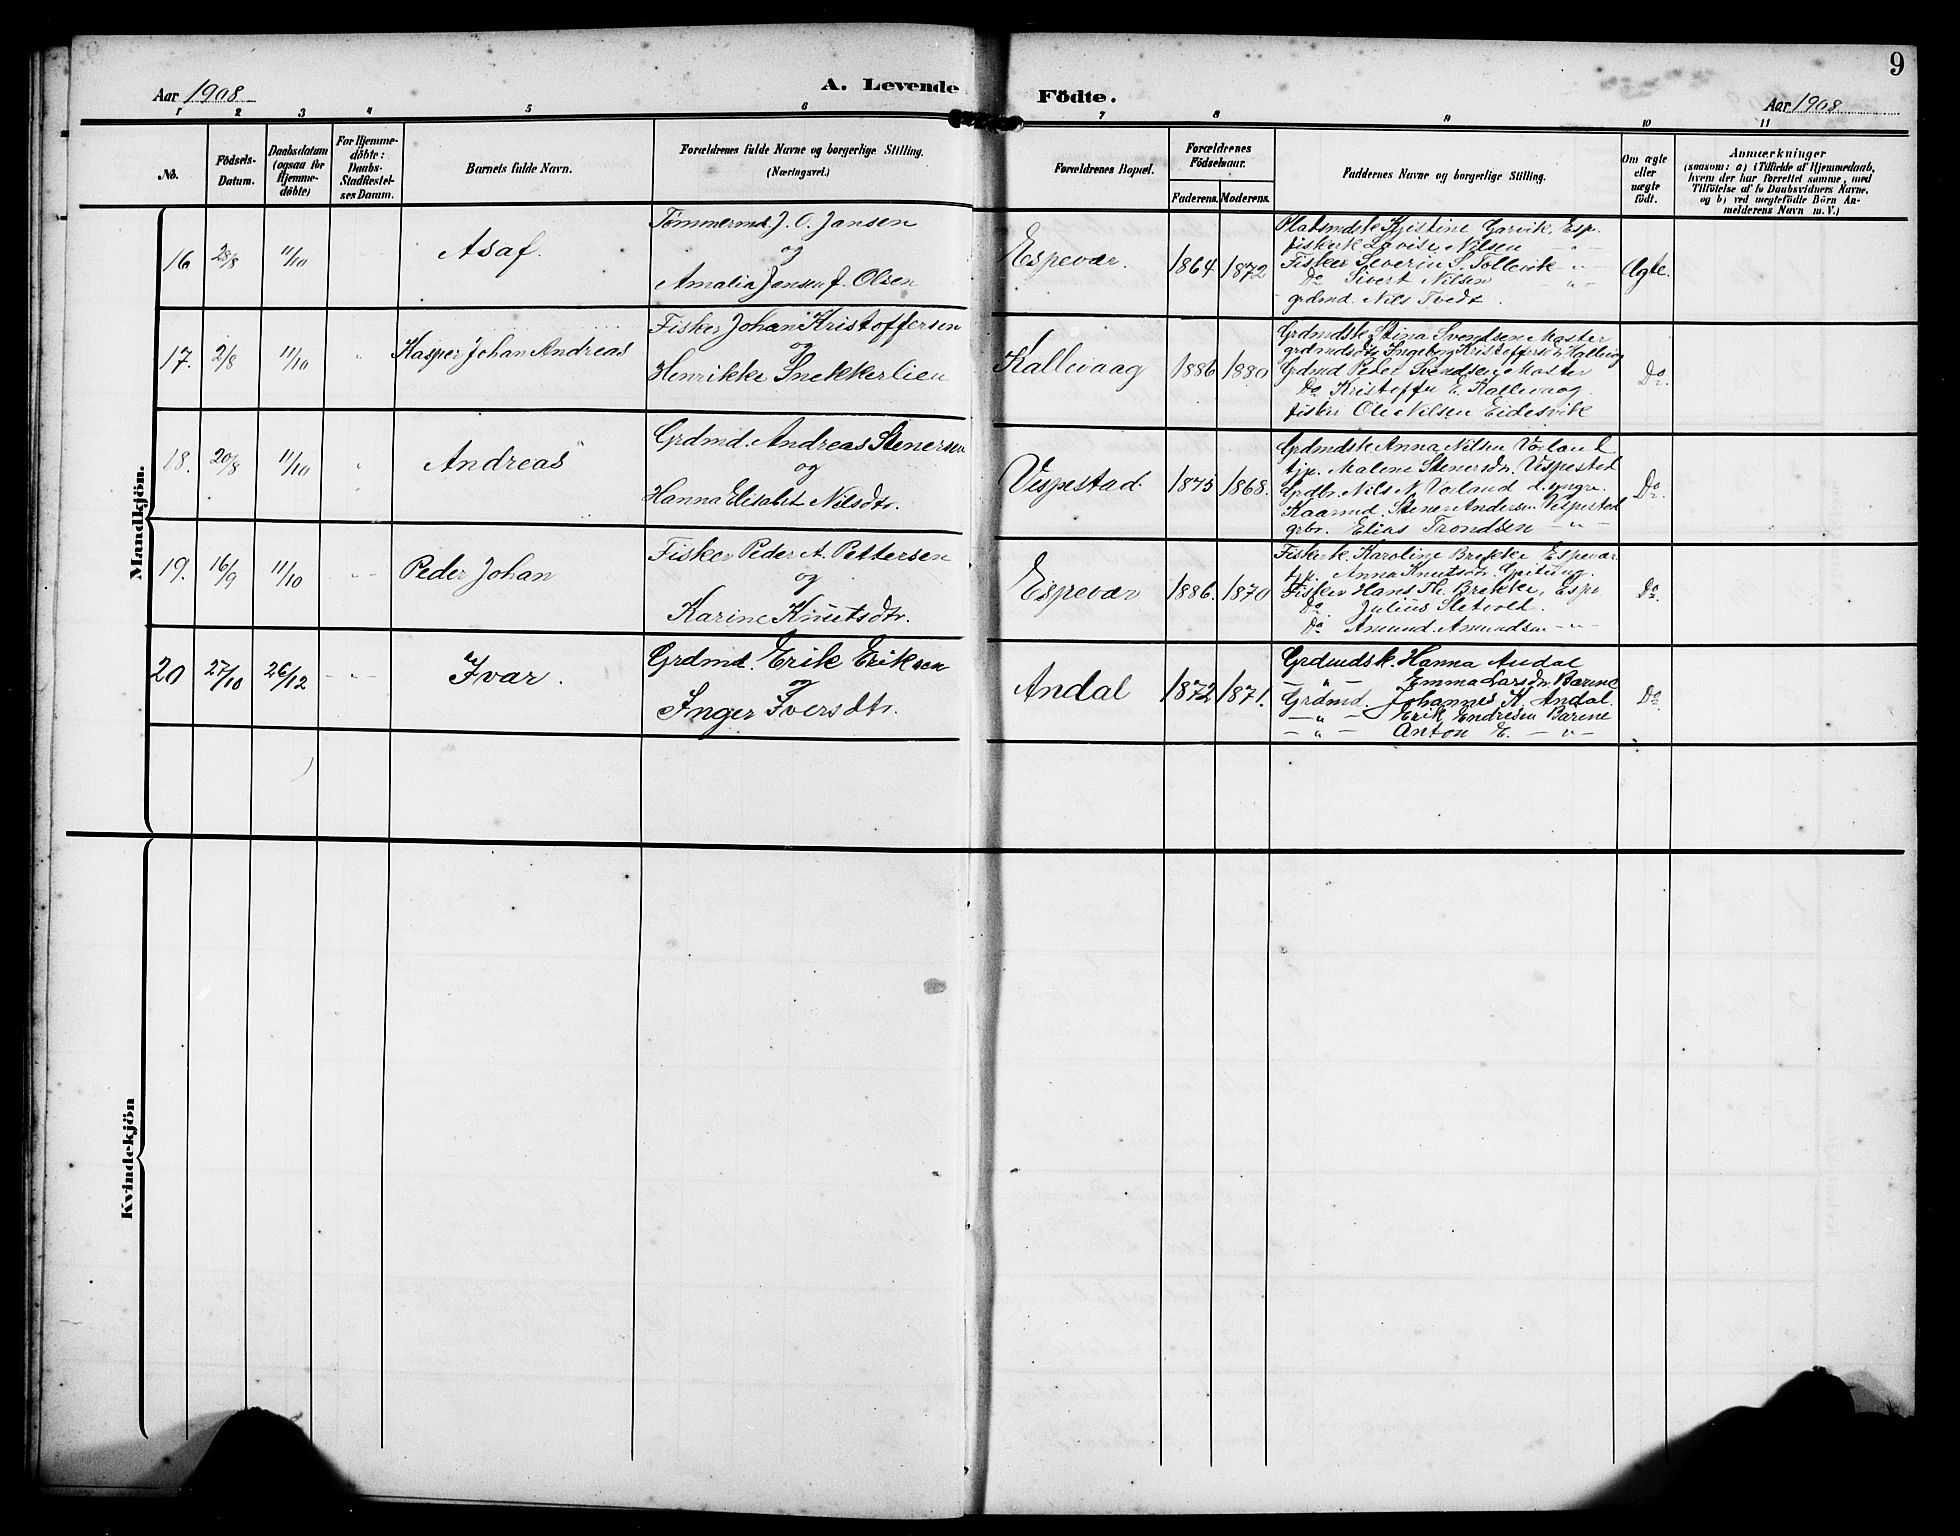 Aar 1908
A. Levende Födte.
9
Aar 1908
1 2 3 4 5 6 7 8 9 10 11
No.
Födsels-
Datum.
Daabsdatum
(ogsaa for
Hjemme-
döbte)
For Hjemme-
döbte:
Daabs-
Stadfæstel-
ses Datum.
Barnets fulde Navn.
Forældrenes fulde Navne og borgerlige Stilling.
(Næringsvei.)
Forældrenes Bopæl.
Forældrenes
Födselsaar.
Faderens. Moderens.
Faddernes Navne og borgerlige Stilling.
Om ægte
eller
uægte
födt.
Anmærkninger
(saasom: a) i Tilfælde af Hjemmedaab,
hvem der har forrettet samme, med
Tilföielse af to Daabsvidners Navne.
og b) ved uægtefödte Börn An-
melderens Navn m. V.)
Mandkjön.
16 28/8 11/10 Asaf.
Tømmermd. J. O. Jansen
og
Amalia Jansen f. Olsen
Espevær. 1864 1872
Pladsmdsk Kristine Garvik, Esp.
fiskerk Lovise Nilsen - " -
Fisker Severin S. Tollevik - " -
Do Sivert Nilsen - " -
grdmd. Nils Tvedt.
Ægte.
17. 2/8 11/10 " Kasper Johan Andreas
Fisker Johan Kristoffersen
og
Henrikke Snekkerlien
Kallevaag 1886 1880
Grdmdsk Stina Svendsen Moster
grdmdsdtr Ingeborg Kristoffersdr. Kallevag
Grdmd Peder Svendsen Moster
Do Kristoffer E. Kallevaag
fisker Ole Nilsen Eidesvik
Do.
18. 20/8 11/10 " Andreas
Grdmd. Andreas Stenersen
og
Hanna Elisabet Nilsdtr.
Vespestad. 1875 1868.
Grdmdsk Anna Nilsen Vorland
tjp. Malene Stenersdr. Vespestad
Grdbr. Nils N. Vorland d. yngre.
Kaarmd. Stener Andersen Vespestad
grbr. Elias Trondsen - " -
Do.
19. 16/9 11/10 - " - Peder Johan
Fisker Peder A. Pettersen
og
Karine Knutsdtr.
Espevær 1886. 1870
Fiskerk. Karoline Brekke Espevær
tjp. Anna Knutsdr. Geitung.
Fisker Hans Th. Brekke, Esp.
Do Julius Sletvold.
Do Amund Amundsen - " -
Do.
20 27/10 26/12 - " - Ivar.
Grdmd. Erik Eriksen
og
Inger Iversdtr.
Andal 1872 1871.
Grdmdsk. Hanna Andal
- " - Emma Larsdr. Barane
Grdmd. Johannes K. Andal.
- " - Erik Endresen Barane
- " - Anton E. - " -
Do.
Kvindekjön